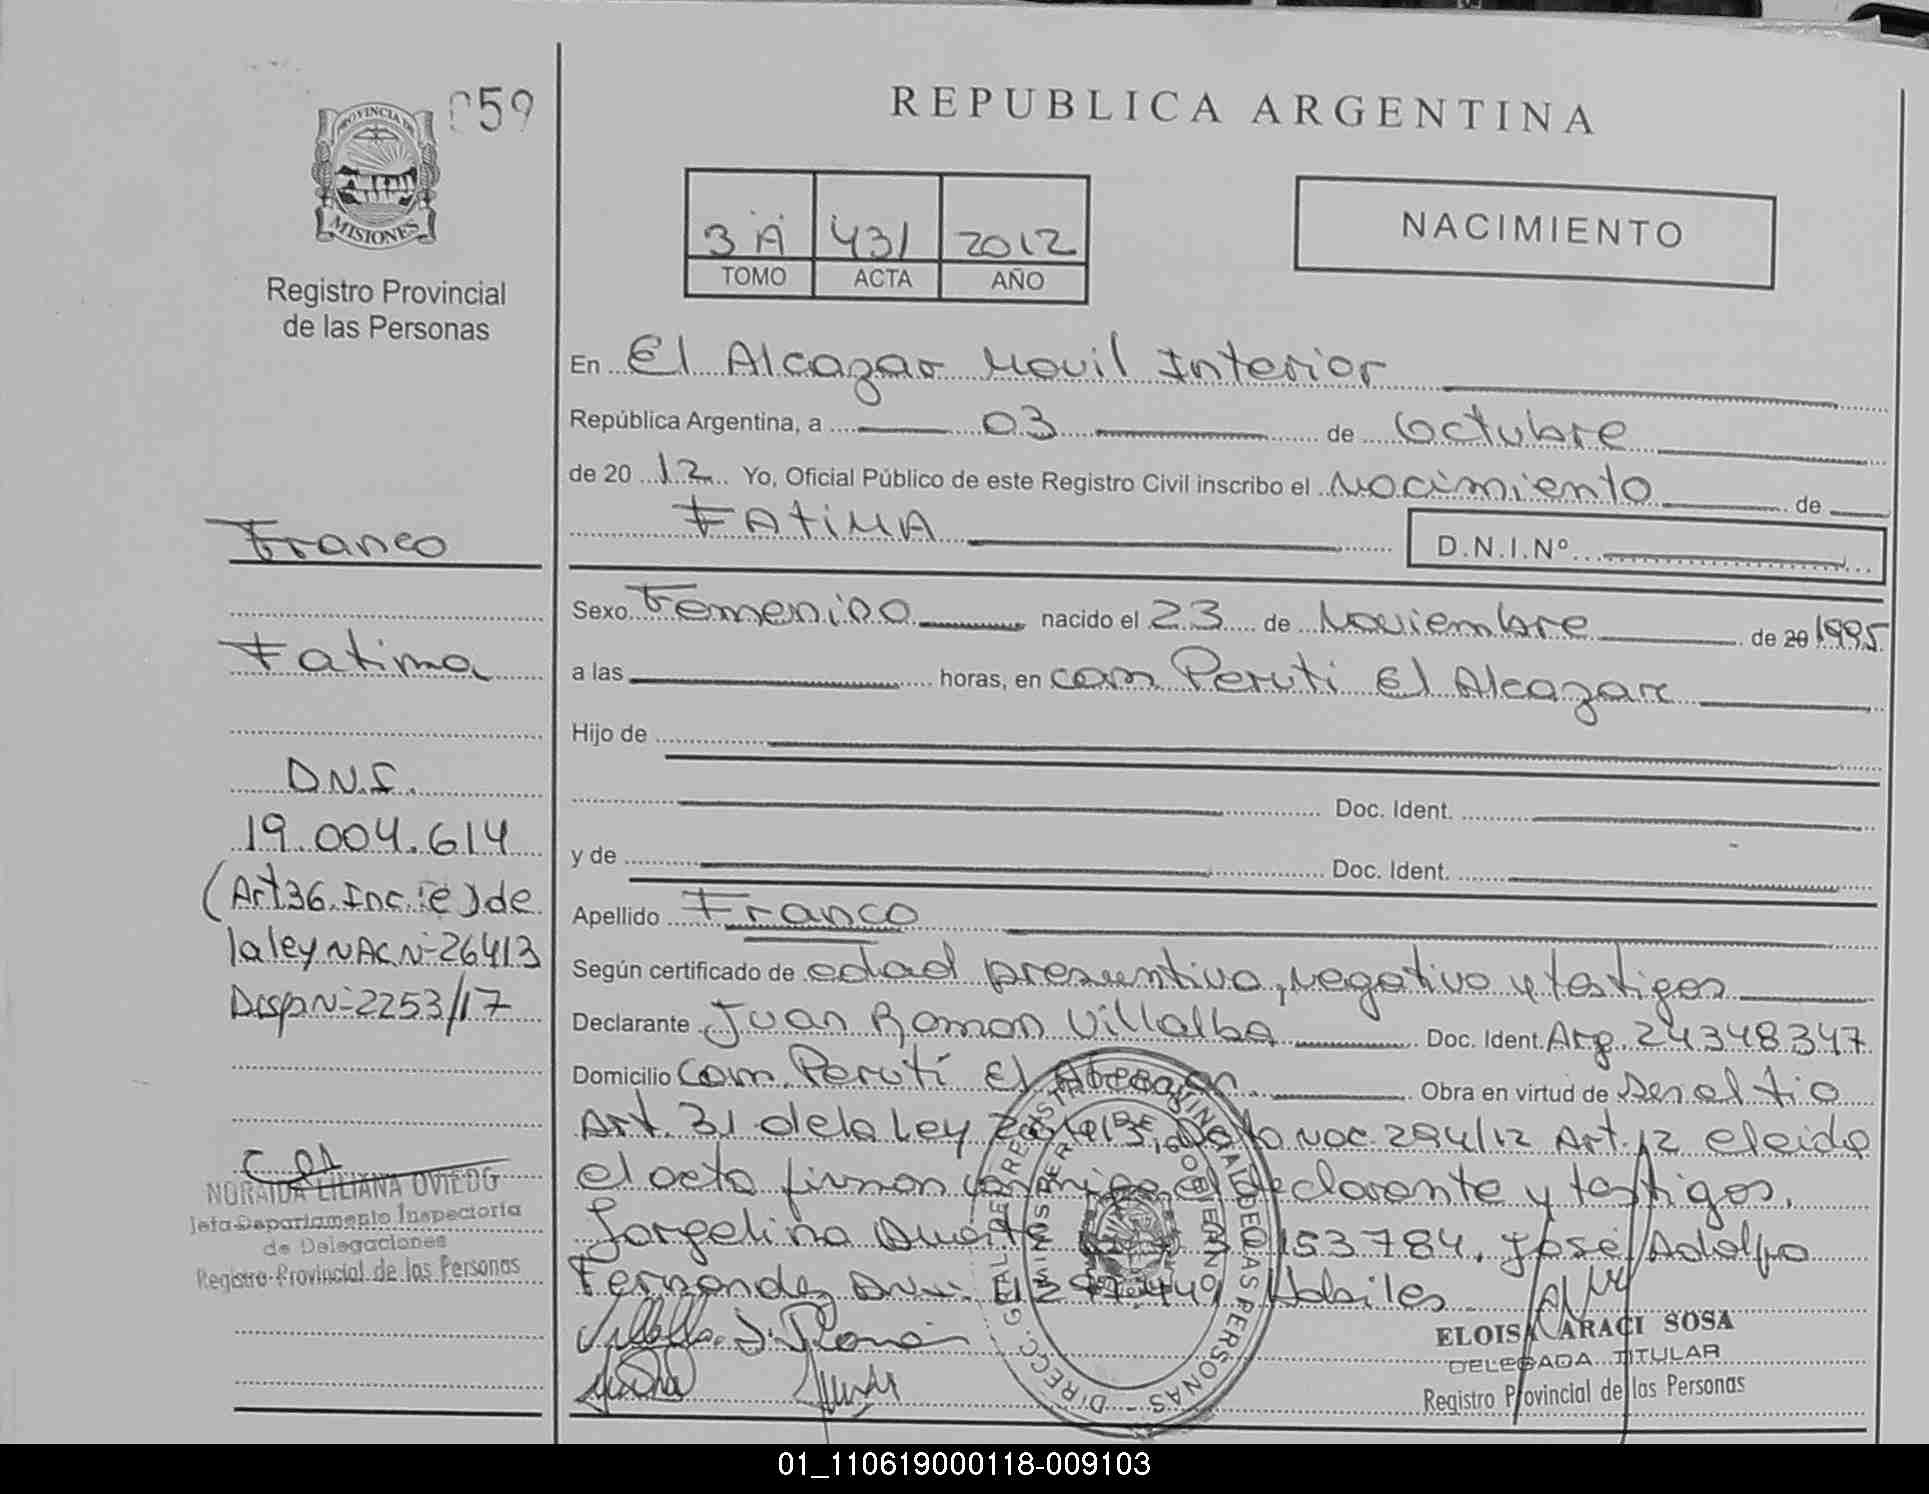 059
PROVINCIA DE
MISIONES
Registro Provincial
de las Personas
REPUBLICA ARGENTINA
3 A 431 2012
TOMO ACTA AÑO
NACIMIENTO
En El Alcazar Movil Interior
República Argentina, a 03 de Octubre
de 20 12 Yo, Oficial Público de este Registro Civil inscribo el Nacimiento de
FATIMA D.N.I.Nº
Sexo Femenino nacido el 23 de Noviembre de 20 1995
a las horas, en com Peruti El Alcazar
Hijo de
Doc. Ident.
y de Doc. Ident.
Apellido Franco
Según certificado de edad presuntiva, negativo y testigos
Declarante Juan Ramon Villalba Doc. Ident. Arg. 24348347
Domicilio Com. Peruti El Alcazar Obra en virtud de ser el tio
Art. 31 de la Ley 26413, Dto Nac 294/12 Art. 12 eleido
el acta firman conmigo el declarante y testigos,
Jorgelina 30153784, José Adolfo
Fernandez Habiles
Villalba J. Román
ELOISA ARACI SOSA
DELEGADA TITULAR
Registro Provincial de las Personas
DIRECC. GRAL. DE REGISTRO PROVINCIAL DE LAS PERSONAS
MINISTERIO DE GOBIERNO
Franco
Fatima
D.N.I.
19.004.614
(Art 36. Inc. "e") de
la ley NAC Nº 26413
Disp Nº 2253/17
NORAIDA LILIANA OVIEDO
Jefa Departamento Inspectoría
de Delegaciones
Registro Provincial de las Personas
01_110619000118-009103